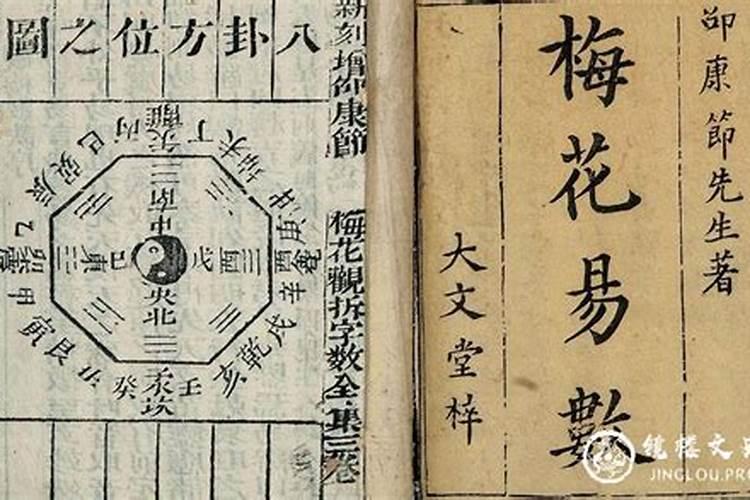 邵康節先生著
梅花易數
大文堂梓
新刻增邵康節
梅花觀拆字數全集三卷
八卦方位之圖
丙
午離
丁
未坤申
庚
酉兌
辛
戌乾亥
壬
子坎
癸
丑艮寅
甲
卯震
乙
辰巽巳
南中
東己
戊西
央北
JINGLOU.PR